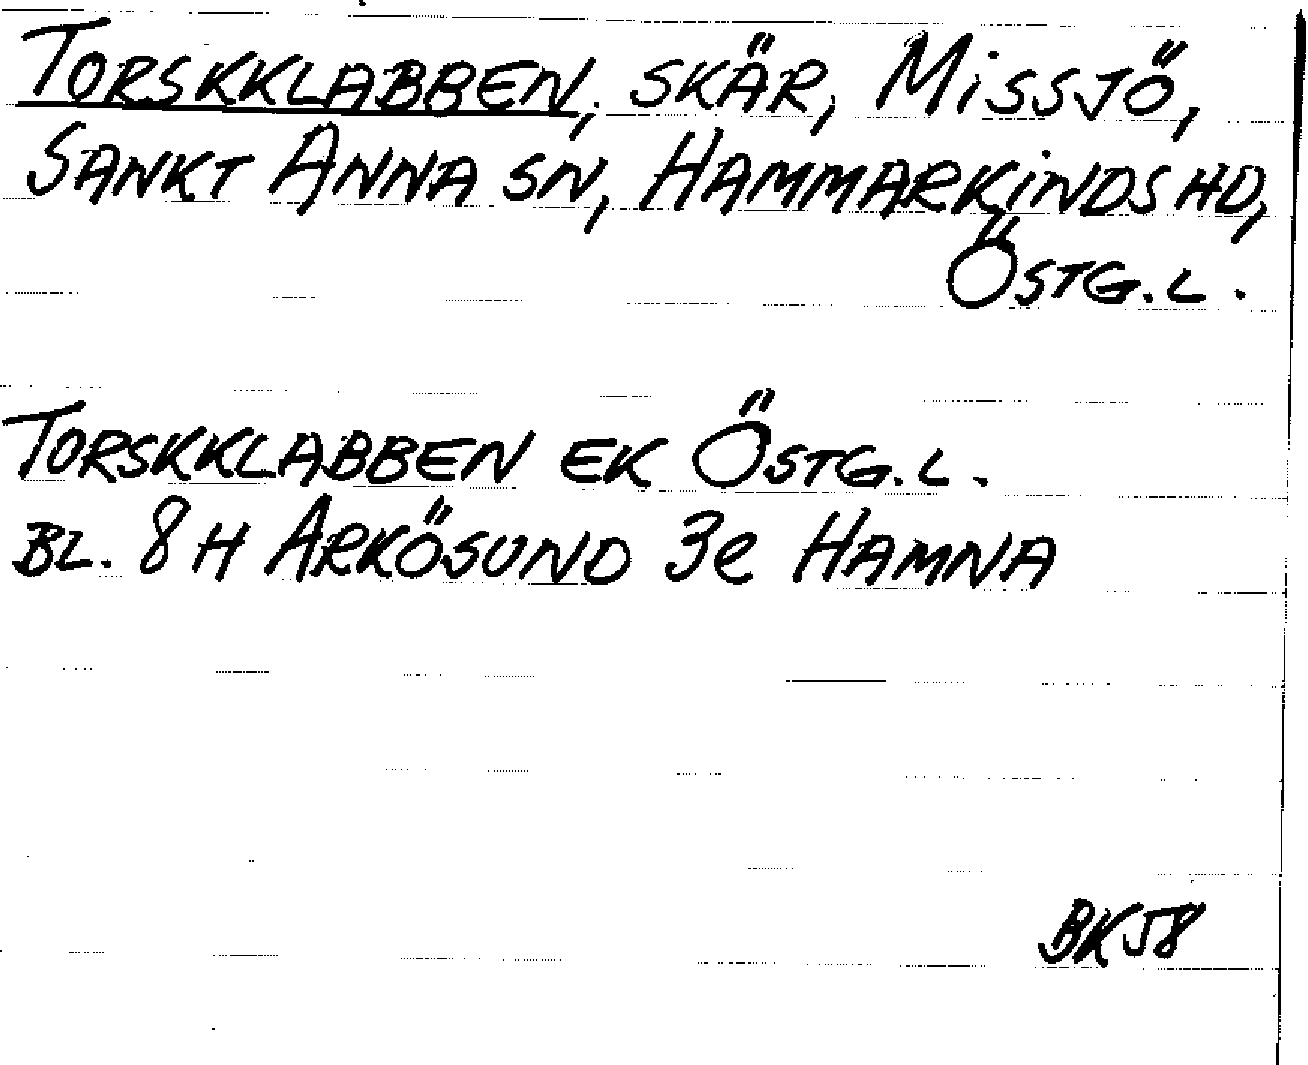 TORSKKLABBEN, SKÄR, MISSJÖ,
SANKT ANNA SN, HAMMARKINDS HD,
ÖSTG.L.
TORSKKLABBEN EK ÖSTG.L.
BL. 8 H ARKÖSUND 3e HAMNA
BK58